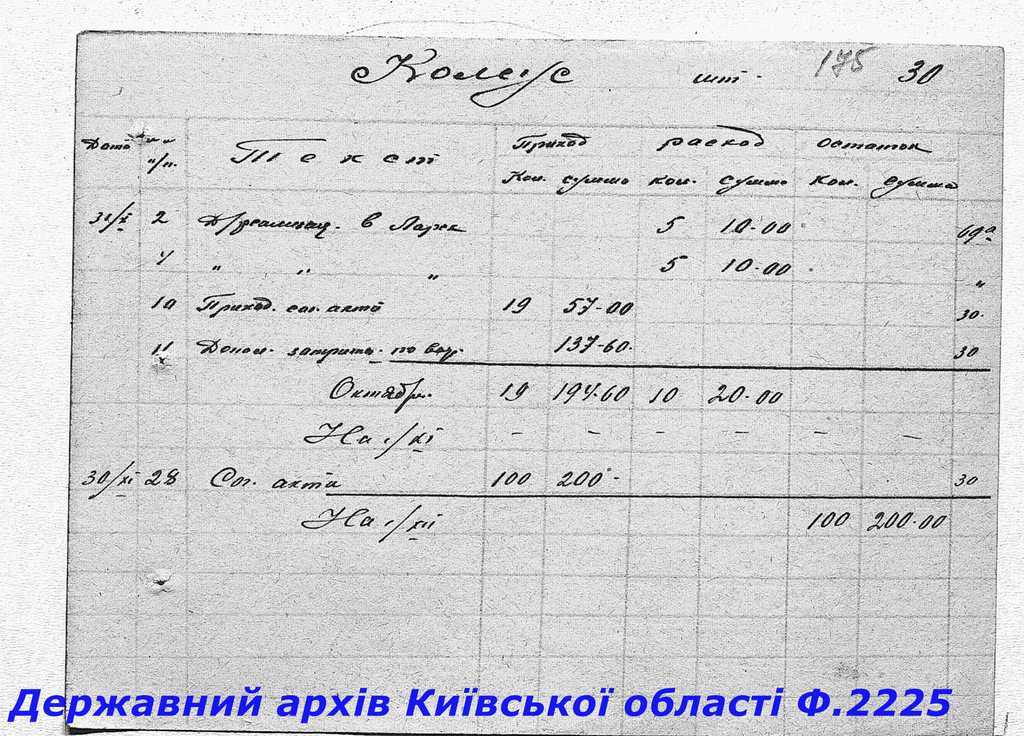 Колеус шт. 175 30
Дата п/п. Текст Приход расход остаток
Кол. сумма кол. сумма кол. сумма
31/X 2 в Парк 5 10-00 69а
4 " " " 5 10-00 "
10 Приход. сог. акта 19 57-00 30.
11 Допол. затраты. по 137-60. 30
Октябрь. 19 194.60 10 20-00
На 1/XI - - - - - -
30/XI 28 Сог. акта 100 200 - 30
На 1/XII 100 200-00
Державний архів Київської області Ф.2225